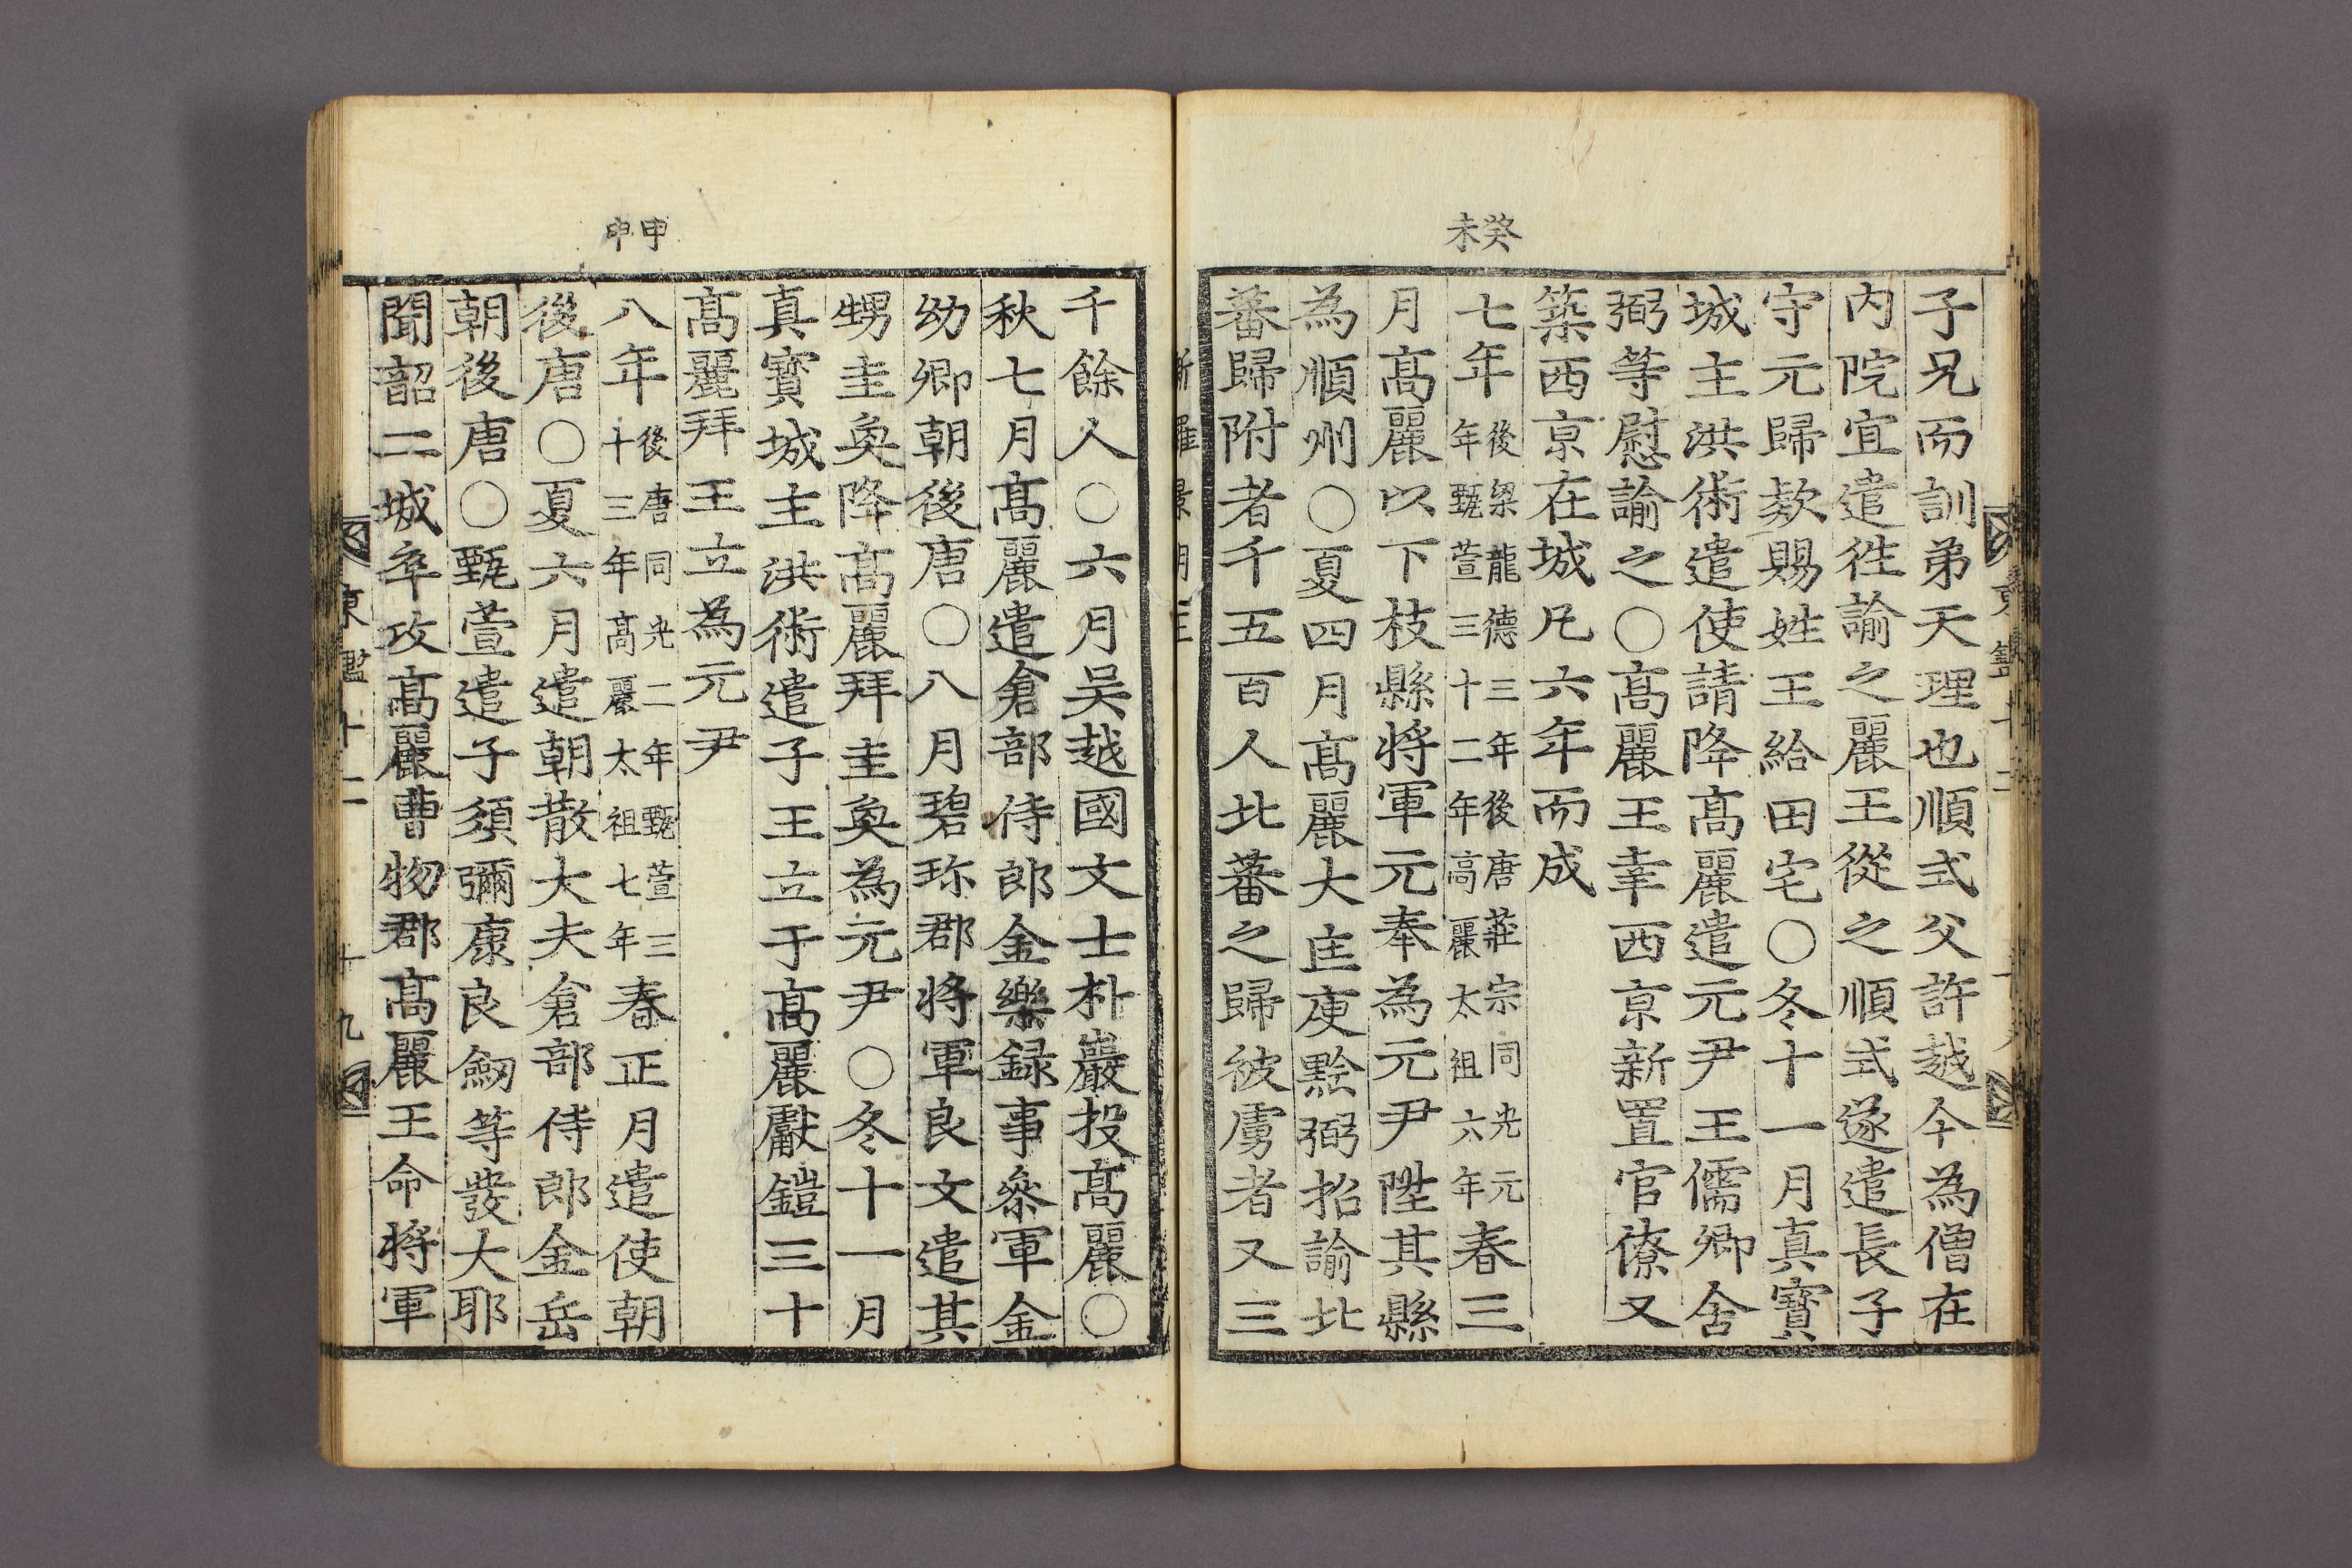 癸未
子兄而訓弟天理也順式父許越今為僧在
内院宜遣徃諭之麗王從之順式遂遣長子
守元歸欵賜姓王給田宅○冬十一月真寶
城主洪術遣使請降高麗遣元尹王儒卿含
弼等慰諭之○高麗王幸西京新置官僚又
築西京在城凡六年而成
七年後梁龍德三年後唐莊宗同光元年甄萱三十二年高麗太祖六年春三
月高麗以下枝縣將軍元奉為元尹陞其縣
為順州○夏四月高麗大匡庾黔弼招諭北
蕃歸附者千五百人北蕃之歸彼虜者又三
甲申
千餘人○六月吴越國文士朴巖投高麗○
秋七月高麗遣倉部侍郎金樂録事叅軍金
幼卿朝後唐○八月碧珎郡將軍良文遣其
甥圭奐降高麗拜圭奐為元尹○冬十一月
真寶城主洪術遣子王立于高麗獻鎧三十
高麗拜王立為元尹
八年後唐同光二年甄萱三十三年高麗太祖七年春正月遣使朝
後唐○夏六月遣朝散大夫倉部侍郎金岳
朝後唐○甄萱遣子須彌康良劒等發大耶
聞韶二城卒攻高麗曹物郡高麗王命將軍
東鑑十二
十九